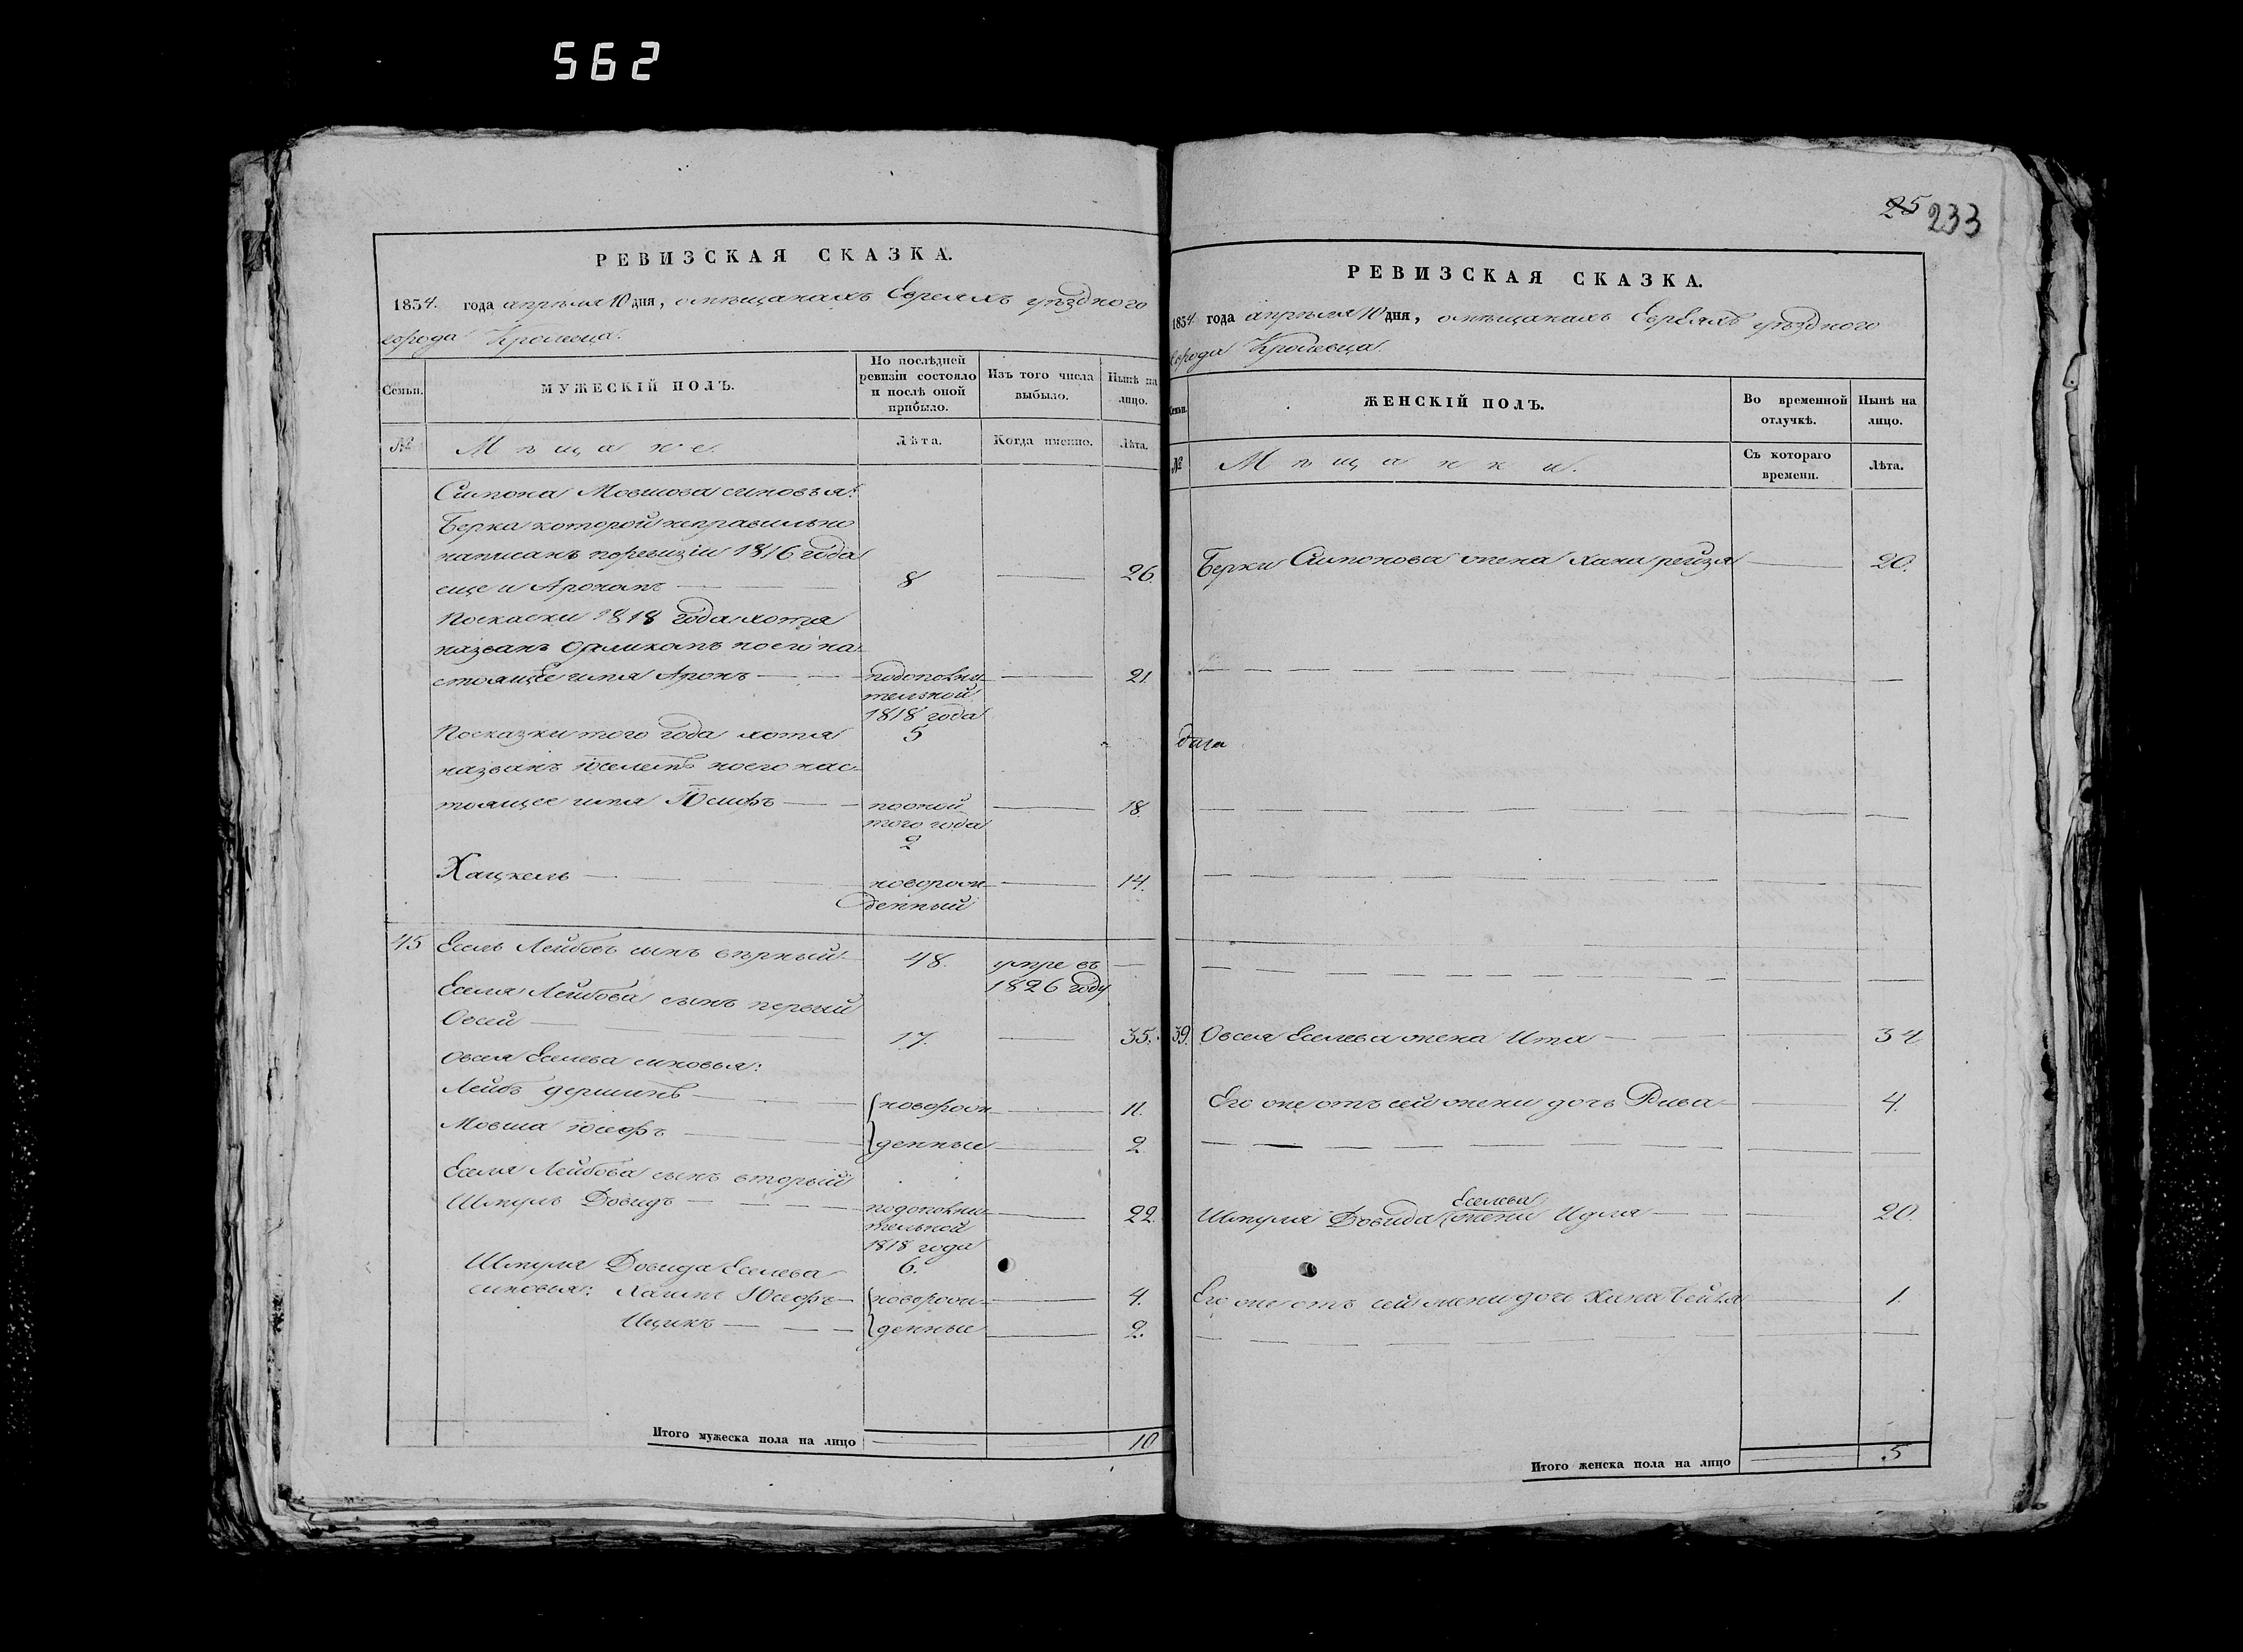 562
25 233
РЕВИЗСКАЯ СКАЗКА.
1834. года апреля 10 дня, о мѣщанахъ Евреяхъ уѣздного
города Кролевца.
Семьи.
МУЖЕСКІЙ ПОЛЪ.
По послѣдней ревизіи состояло и послѣ оной прибыло.
Изъ того числа выбыло.
Нынѣ на лицо.
№
Мѣщане.
Лѣта.
Когда именно.
Лѣта.
Симона Мовшова сыновья:
Берка которой неправильно
написанъ поревизіи 1816 года
еще и Арономъ — 8 — 26.
Посказки 1818 года хотя
названъ но его на-
стоящее имя Аронъ — подополни- — 21.
тельной
1818 года
5
Посказки того года хотя
названъ но его нас-
тоящее имя Юсифъ — пооной — 18.
того года
2
Хацкель — новорож- — 14.
денный
45 Есель Лейбовъ сынъ — 48. умре въ —
1826 году
Еселя Лейбова сынъ первый
Овсей — 17. — 35.
Овсея Еселева сыновья:
Лейбъ — новорож- — 11.
Мовша Юсефъ — денные — 2
Еселя Лейбова сынъ вторый
Шмуль Довидъ — подополни- — 22.
тельной
1818 года
6.
Шмуля Довида Еселева
сыновья: Хаимъ Юсефъ — новорож- — 4.
Ицикъ — денные — 2.
Итого мужеска пола на лицо — 10
РЕВИЗСКАЯ СКАЗКА.
1834. года апреля 10 дня, о мѣщанахъ Евреяхъ уѣздного
города Кролевца.
Семьи.
ЖЕНСКІЙ ПОЛЪ.
Во временной отлучкѣ.
Нынѣ на лицо.
№
Мѣщанки.
Съ котораго времени.
Лѣта.
Берки Симонова жена Хана рейзя — 20.
39. Овсея Еселева жена Ита — 34
Его же отъ сей жены дочь Рива — 4.
Еселева
Шмуля Довида жена Идля — 20.
Его же отъ сей жены дочь Хана Бейля — 1.
Итого женска пола на лицо — 5